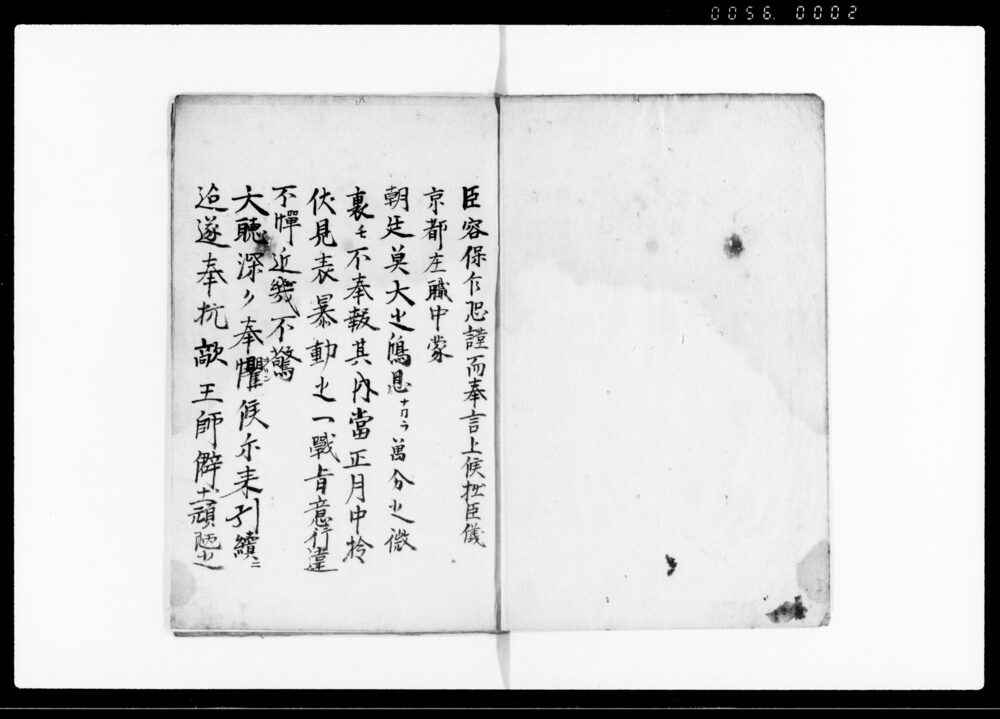 0056. 0002
臣容保乍恐謹而奉言上候拙臣儀
京都在職中蒙
朝廷莫大之鴻恩ナカラ萬分之微
裏モ不奉報其内當正月中於
伏見表暴動之一戰旨意行違
不憚近畿不驚
天聴深ク奉懼候尓来引續ニ
迨遂奉抗敵王師僻土頑陋之